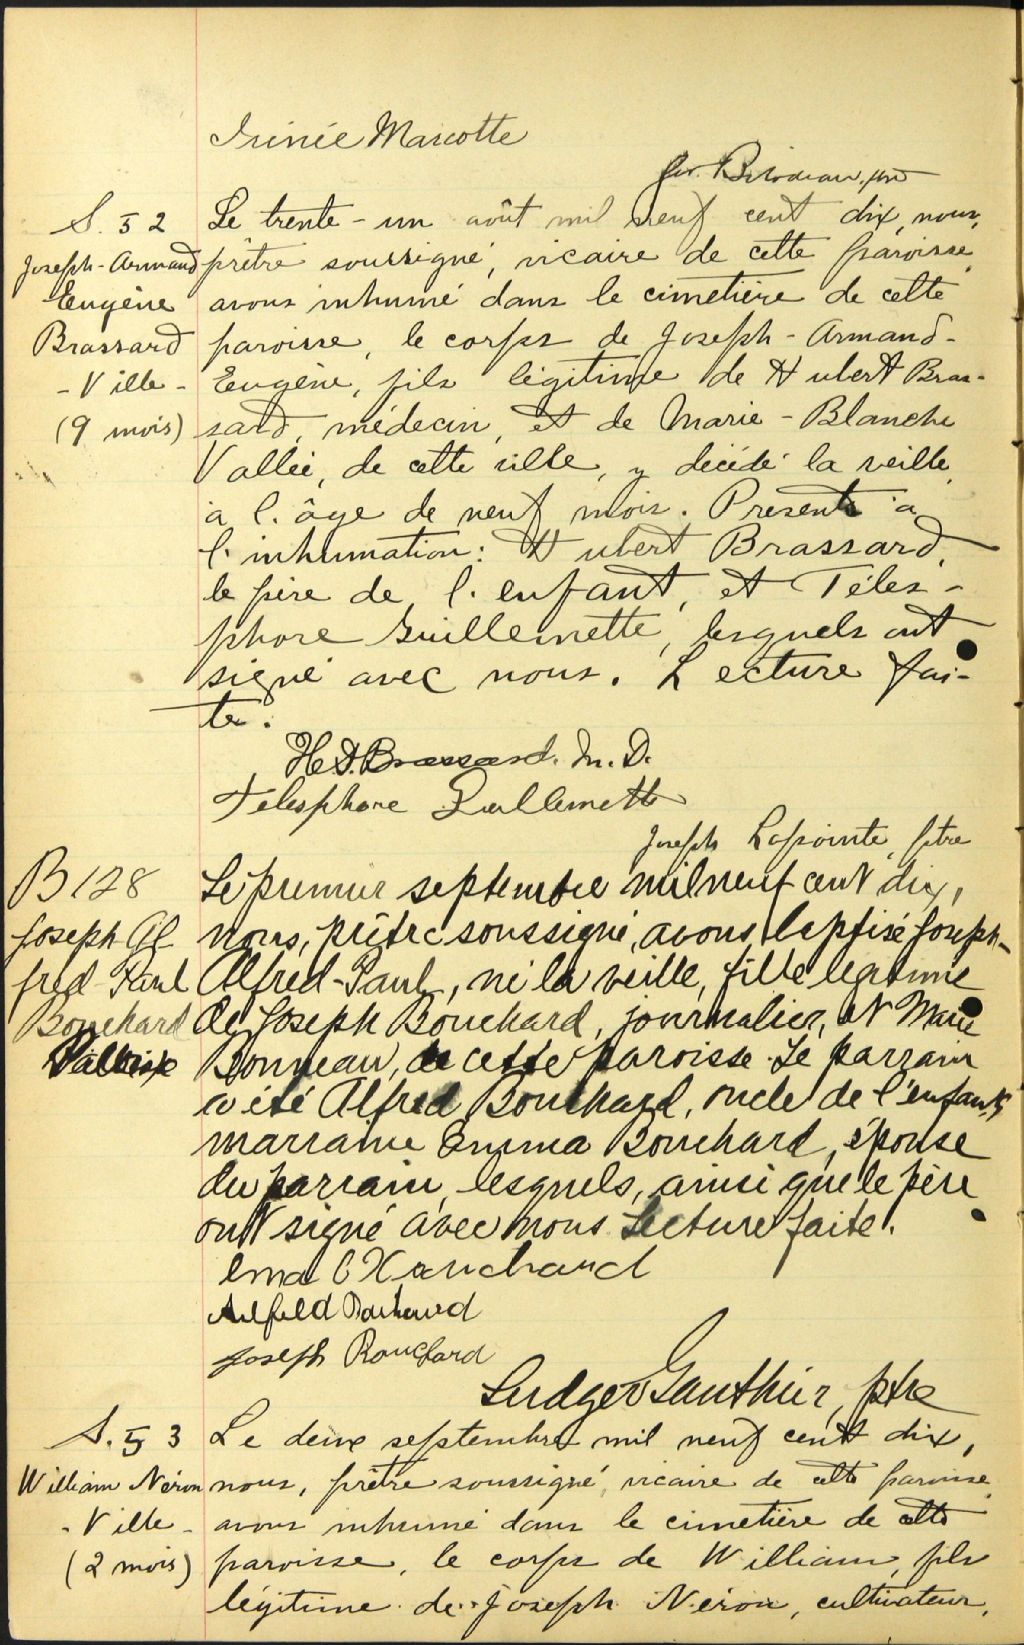 Irinée Marcotte
Jos. Bilodeau, ptre
S. 52
Joseph-Armand
Eugène
Brassard
- Ville -
(9 mois)
Le trente-un août mil neuf cent dix, nous,
prêtre soussigné, vicaire de cette paroisse,
avons inhumé dans le cimetière de cette
paroisse, le corps de Joseph-Armand-
Eugène, fils légitime de Hubert Bras-
sard, médecin, et de Marie-Blanche
Vallée, de cette ville, y décédé la veille,
à l'âge de neuf mois. Présents à
l'inhumation: Hubert Brassard,
le père de l'enfant, et Téles-
phore Guillemette, lesquels ont
signé avec nous. Lecture fai-
te.
H. D. Brassard. M. D.
Télesphore Guillemette
Joseph Lapointe, ptre
B 128
Joseph Al
fred Paul
Bouchard
Le premier septembre mil neuf cent dix,
nous, prêtre soussigné, avons baptisé Joseph-
Alfred-Paul, né la veille, fils légitime
de Joseph Bouchard, journalier, et Marie
Bonneau, de cette paroisse. Le parrain
a été Alfred Bouchard, oncle de l'enfant,
marraine Emma Bouchard, épouse
du parrain, lesquels, ainsi que le père
ont signé avec nous. Lecture faite.
Ema Bouchard
Alfred Bouchard
Joseph Bouchard
Ludger Gauthier, ptre
S. 53
William Néron
- Ville -
(2 mois)
Le deux septembre mil neuf cent dix,
nous, prêtre soussigné, vicaire de cette paroisse,
avons inhumé dans le cimetière de cette
paroisse, le corps de William, fils
légitime de Joseph Néron, cultivateur,